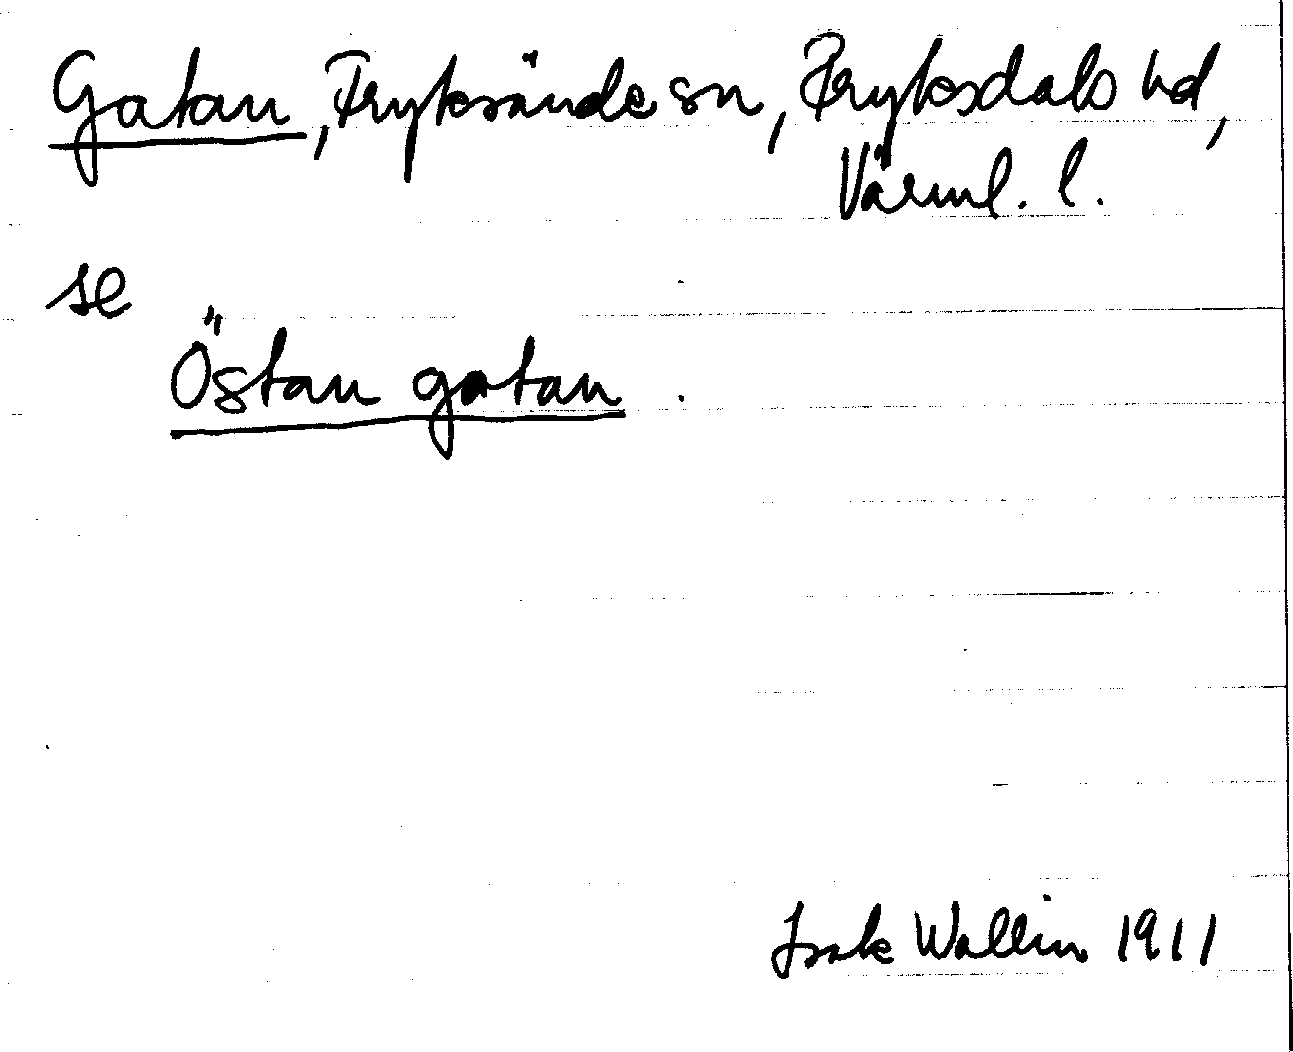 Gatan, Fryksände sn, Fryksdals hd,
Värml. l.
se
Östan gatan.
Isak Wallin 1911